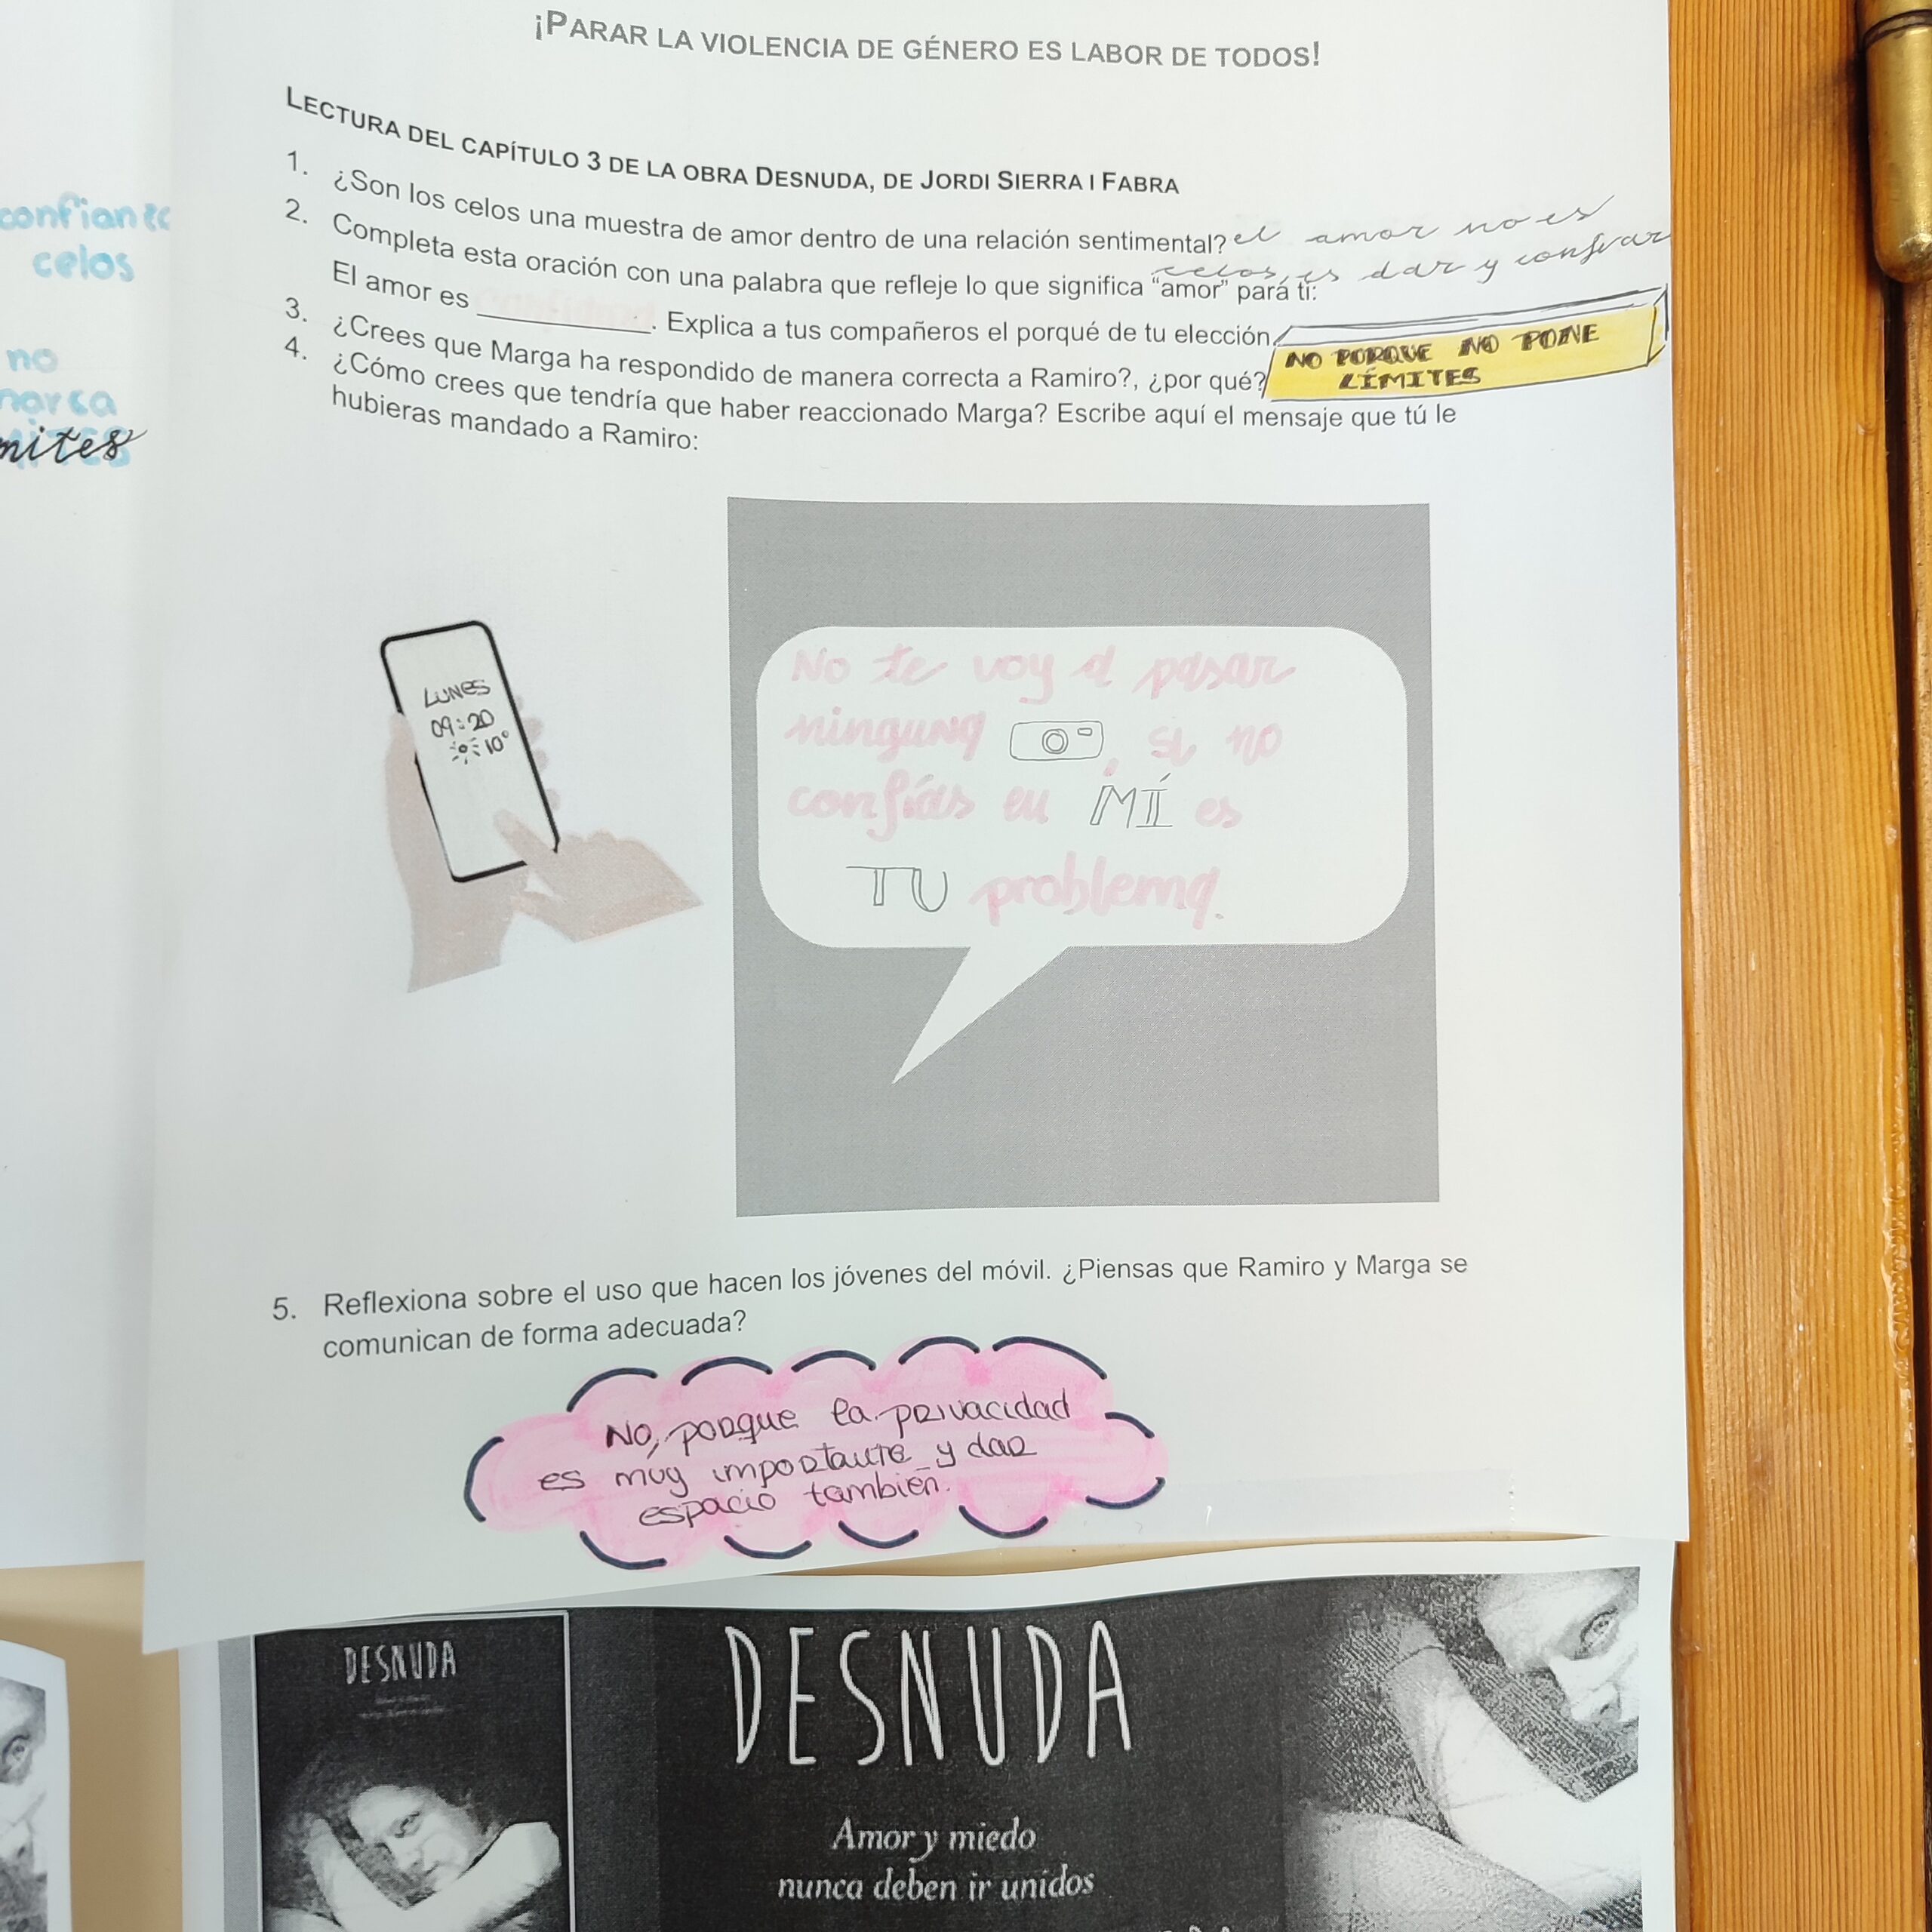 ¡PARAR LA VIOLENCIA DE GÉNERO ES LABOR DE TODOS!
LECTURA DEL CAPÍTULO 3 DE LA OBRA DESNUDA, DE JORDI SIERRA I FABRA
1. ¿Son los celos una muestra de amor dentro de una relación sentimental?
el amor no es
celos, es dar y confiar
2. Completa esta oración con una palabra que refleje lo que significa “amor” para ti:
El amor es ____________. Explica a tus compañeros el porqué de tu elección.
3. ¿Crees que Marga ha respondido de manera correcta a Ramiro?, ¿por qué?
NO PORQUE NO PONE
LÍMITES
4. ¿Cómo crees que tendría que haber reaccionado Marga? Escribe aquí el mensaje que tú le
hubieras mandado a Ramiro:
LUNES
09:20
10°
No te voy a pasar
ninguna , si no
confías en MÍ es
TU problema.
5. Reflexiona sobre el uso que hacen los jóvenes del móvil. ¿Piensas que Ramiro y Marga se
comunican de forma adecuada?
No, porque la privacidad
es muy importante y dar
espacio también.
celos
no
DESNUDA
DESNUDA
Amor y miedo
nunca deben ir unidos